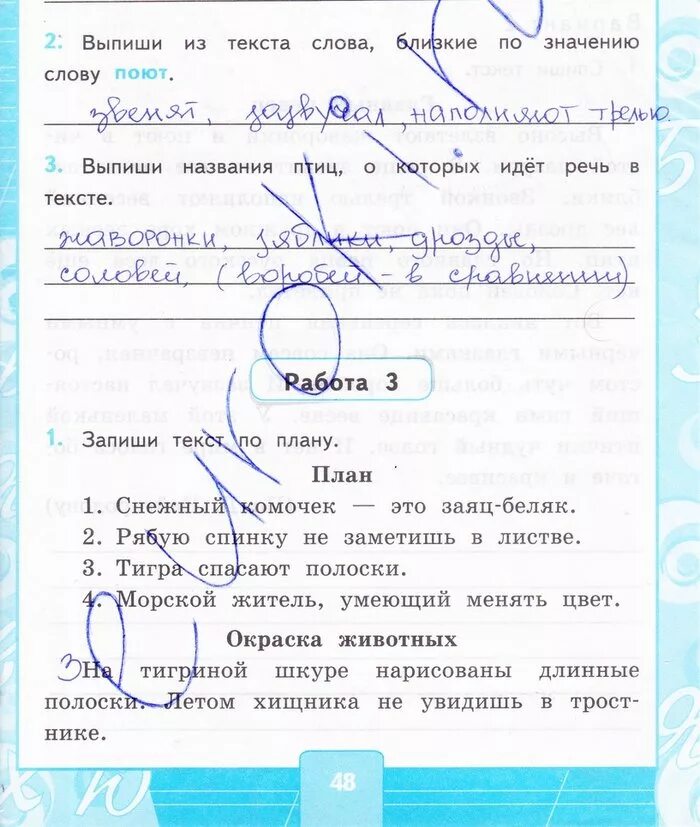 2. Выпиши из текста слова, близкие по значению
слову поют.
звенят, зазвучал наполняют трелью.
3. Выпиши названия птиц, о которых идёт речь в
тексте.
жаворонки, зяблики, дрозды,
соловей, (воробей - в сравнении)
Работа 3
1. Запиши текст по плану.
План
1. Снежный комочек — это заяц-беляк.
2. Рябую спинку не заметишь в листве.
3. Тигра спасают полоски.
4. Морской житель, умеющий менять цвет.
Окраска животных
3 На тигриной шкуре нарисованы длинные
полоски. Летом хищника не увидишь в трост-
нике.
48